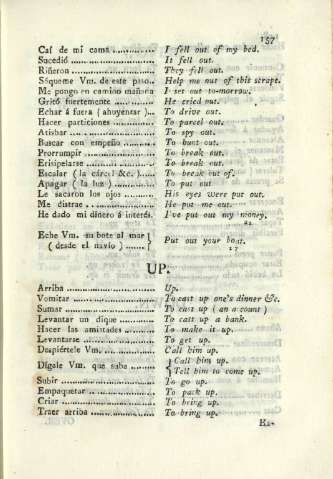 157
Caí de mi cama ............ I fell out of my bed.
Sucedió .................... It fell out.
Riñeron .................... They fell out.
Sáqueme Vm. de este paso.. Help me out of this scrape.
Me pongo en camino mañana I set out to-morrow.
Gritó fuertemente .......... He cried out.
Echar á fuera ( ahuyentar )... To drive out.
Hacer particiones .......... To parcel out.
Atisbar .................... To spy out.
Buscar con empeño .......... To hunt out.
Prorrumpir ................. To break out.
Erisipelarse ............... To break out.
Escalar ( la cárcel &c. )... To break out of.
Apagar ( la luz ) .......... To put out
Le sacaron los ojos ........ His eyes were put out.
Me distrae ................. He put me out.
He dado mi dinero á interés. I've put out my money.
Eche Vm. su bote al mar
( desde el navio ) ....... Put out your boat.
UP.
Arriba ..................... Up.
Vomitar .................... To cast up one's dinner &c.
Sumar ...................... To cast up ( an account )
Levantar un dique .......... To cast up a bank.
Hacer las amistades ........ To make it up.
Levantarse ................. To get up.
Despiértele Vm. ............ Call him up.
Dígale Vm. que suba ........ Call him up.
Tell him to come up.
Subir ...................... To go up.
Empaquetar ................. To pack up.
Criar ...................... To bring up.
Traer arriba ............... To bring up.